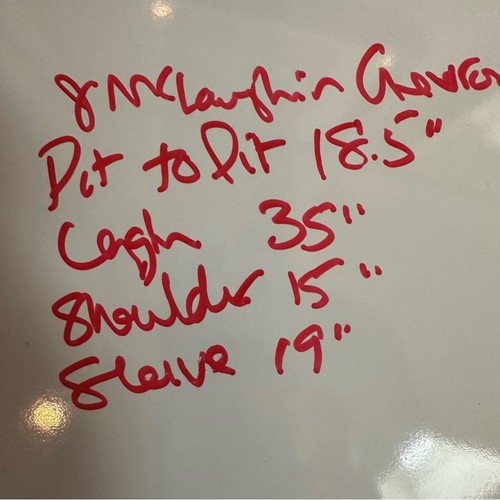 J McLaughlin Chevron
Pit to Pit 18.5"
Length 35"
Shoulder 15"
Sleeve 19"